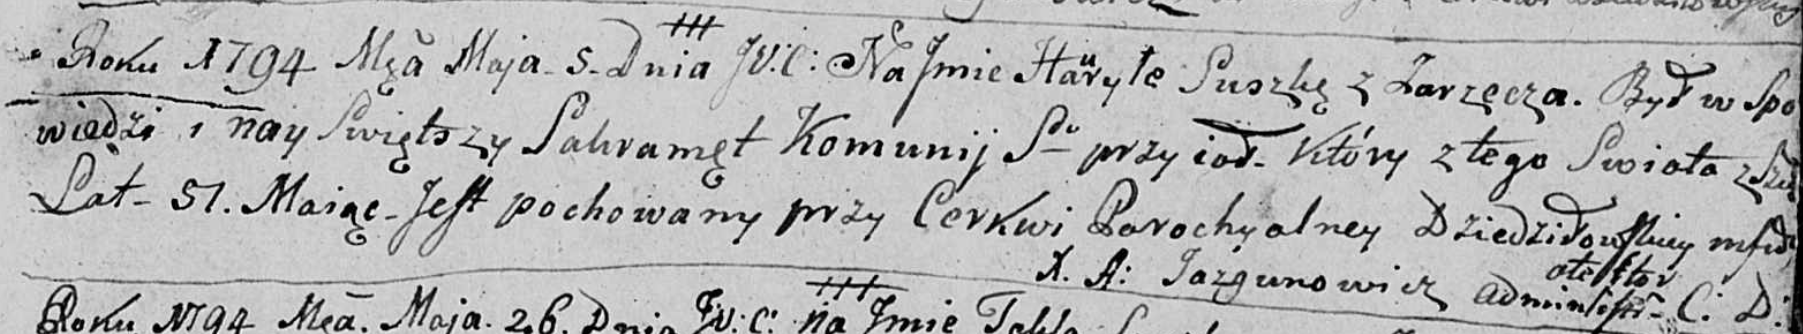 Roku 1794 Mcã Maja. 5. Dnia JV.C: Na Jmie Hauryłe Suszkę z Zarzęcza. Był w Spo
wiedzi i nay Swiętszy Sakramęt Komunij Sᵈᵘ przyioł. Który z tego Swiata zSzed
Lat. 51. Maiąc. Jest pochowany przy Cerkwi Parochyalney Dziedziłowskiey
X. A: Jazgunowicz Administr̃. C. D:
Roku 1794 Mcã. Maja. 26. Dnia JV: C: na Jmie Tekla